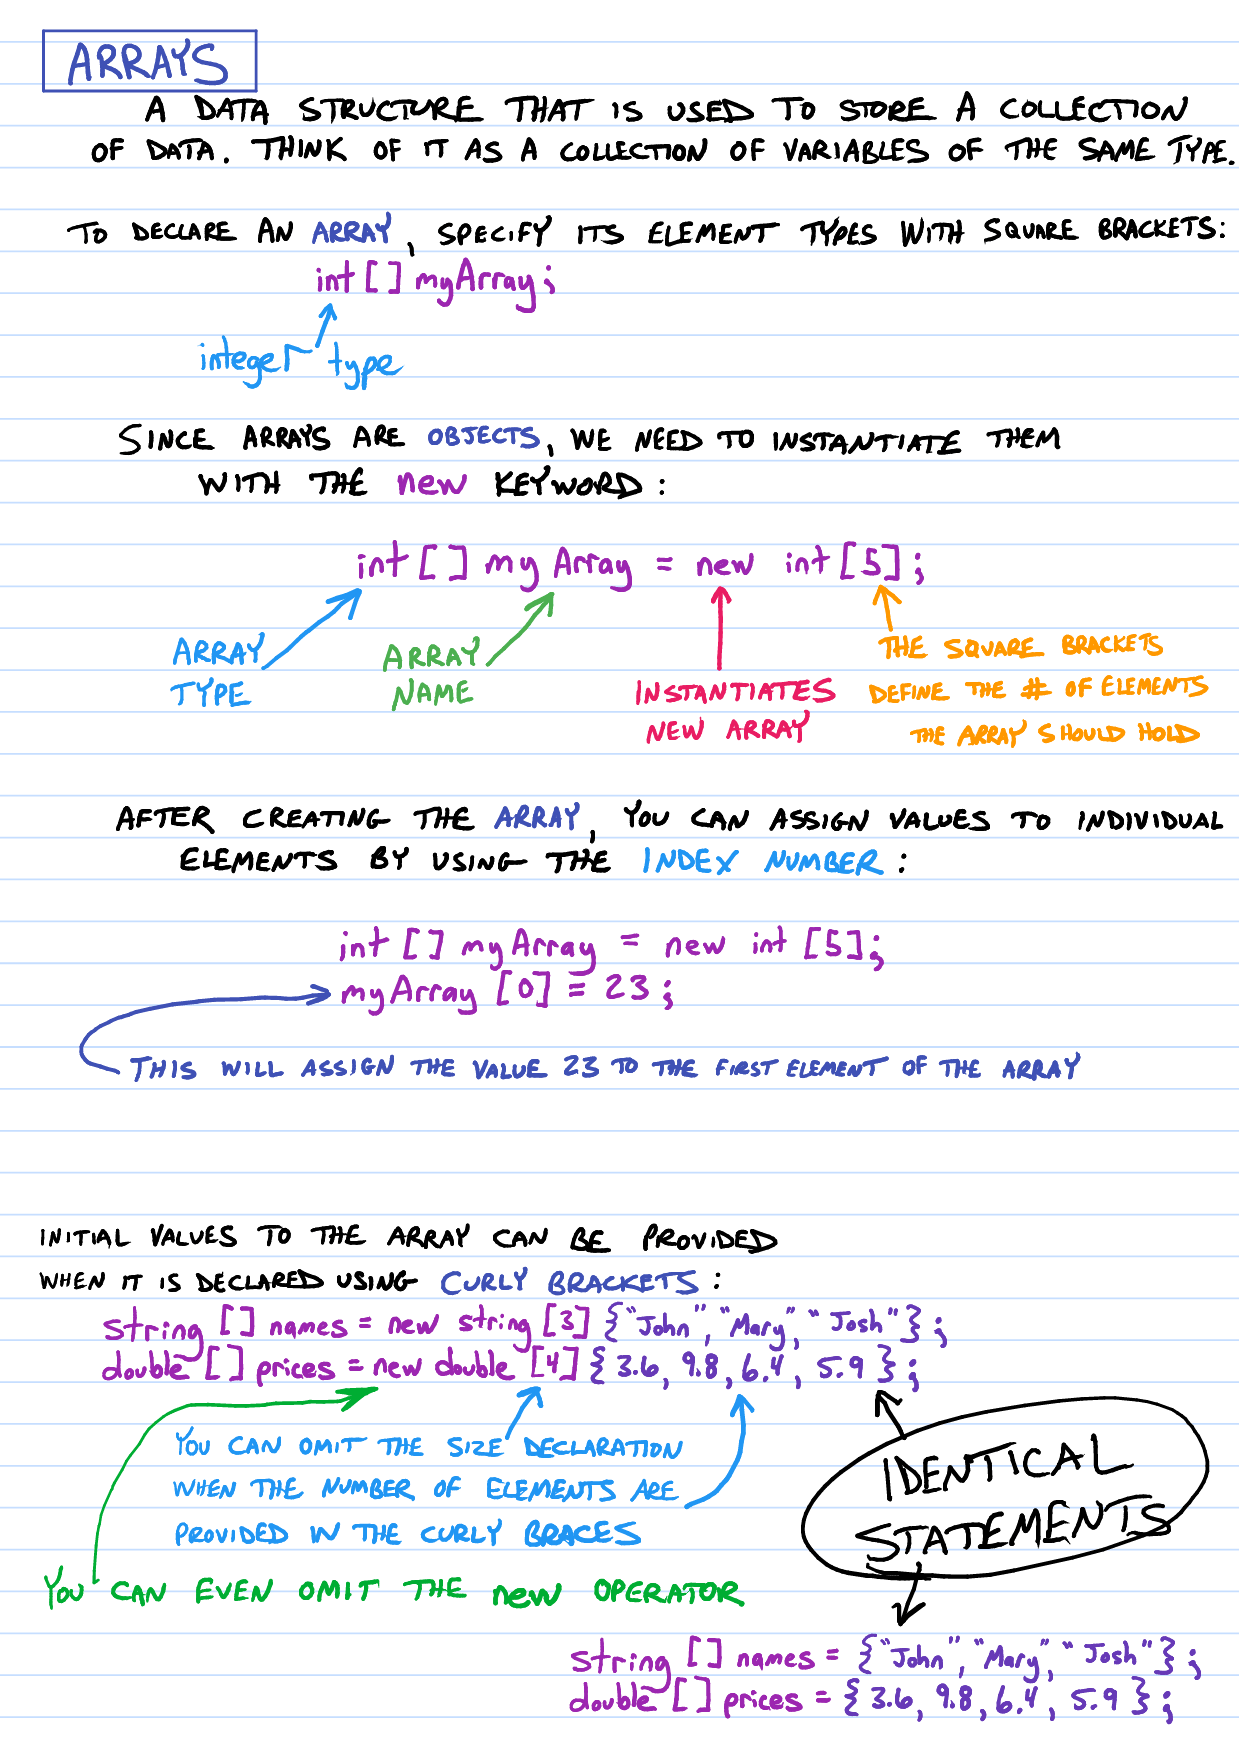 ARRAYS
A DATA STRUCTURE THAT IS USED TO STORE A COLLECTION
OF DATA. THINK OF IT AS A COLLECTION OF VARIABLES OF THE SAME TYPE.
TO DECLARE AN ARRAY, SPECIFY ITS ELEMENT TYPES WITH SQUARE BRACKETS:
int[] myArray;
integer type
SINCE ARRAYS ARE OBJECTS, WE NEED TO INSTANTIATE THEM
WITH THE new KEYWORD:
int[] myArray = new int[5];
ARRAY
TYPE
ARRAY
NAME
INSTANTIATES
NEW ARRAY
THE SQUARE BRACKETS
DEFINE THE # OF ELEMENTS
THE ARRAY SHOULD HOLD
AFTER CREATING THE ARRAY, YOU CAN ASSIGN VALUES TO INDIVIDUAL
ELEMENTS BY USING THE INDEX NUMBER:
int[] myArray = new int[5];
myArray[0] = 23;
THIS WILL ASSIGN THE VALUE 23 TO THE FIRST ELEMENT OF THE ARRAY
INITIAL VALUES TO THE ARRAY CAN BE PROVIDED
WHEN IT IS DECLARED USING CURLY BRACKETS:
string [] names = new string [3] {"John", "Mary", "Josh"};
double [] prices = new double [4] {3.6, 9.8, 6.4, 5.9};
YOU CAN OMIT THE SIZE DECLARATION
WHEN THE NUMBER OF ELEMENTS ARE
PROVIDED IN THE CURLY BRACES
YOU CAN EVEN OMIT THE new OPERATOR
IDENTICAL
STATEMENTS
string [] names = {"John", "Mary", "Josh"};
double [] prices = {3.6, 9.8, 6.4, 5.9};